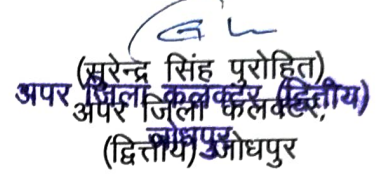 (सुरेन्द्र सिंह पुरोहित)
अपर जिला कलक्टर (द्वितीय)
अपर जिला कलक्टर,
जोधपुर
(द्वितीय) जोधपुर